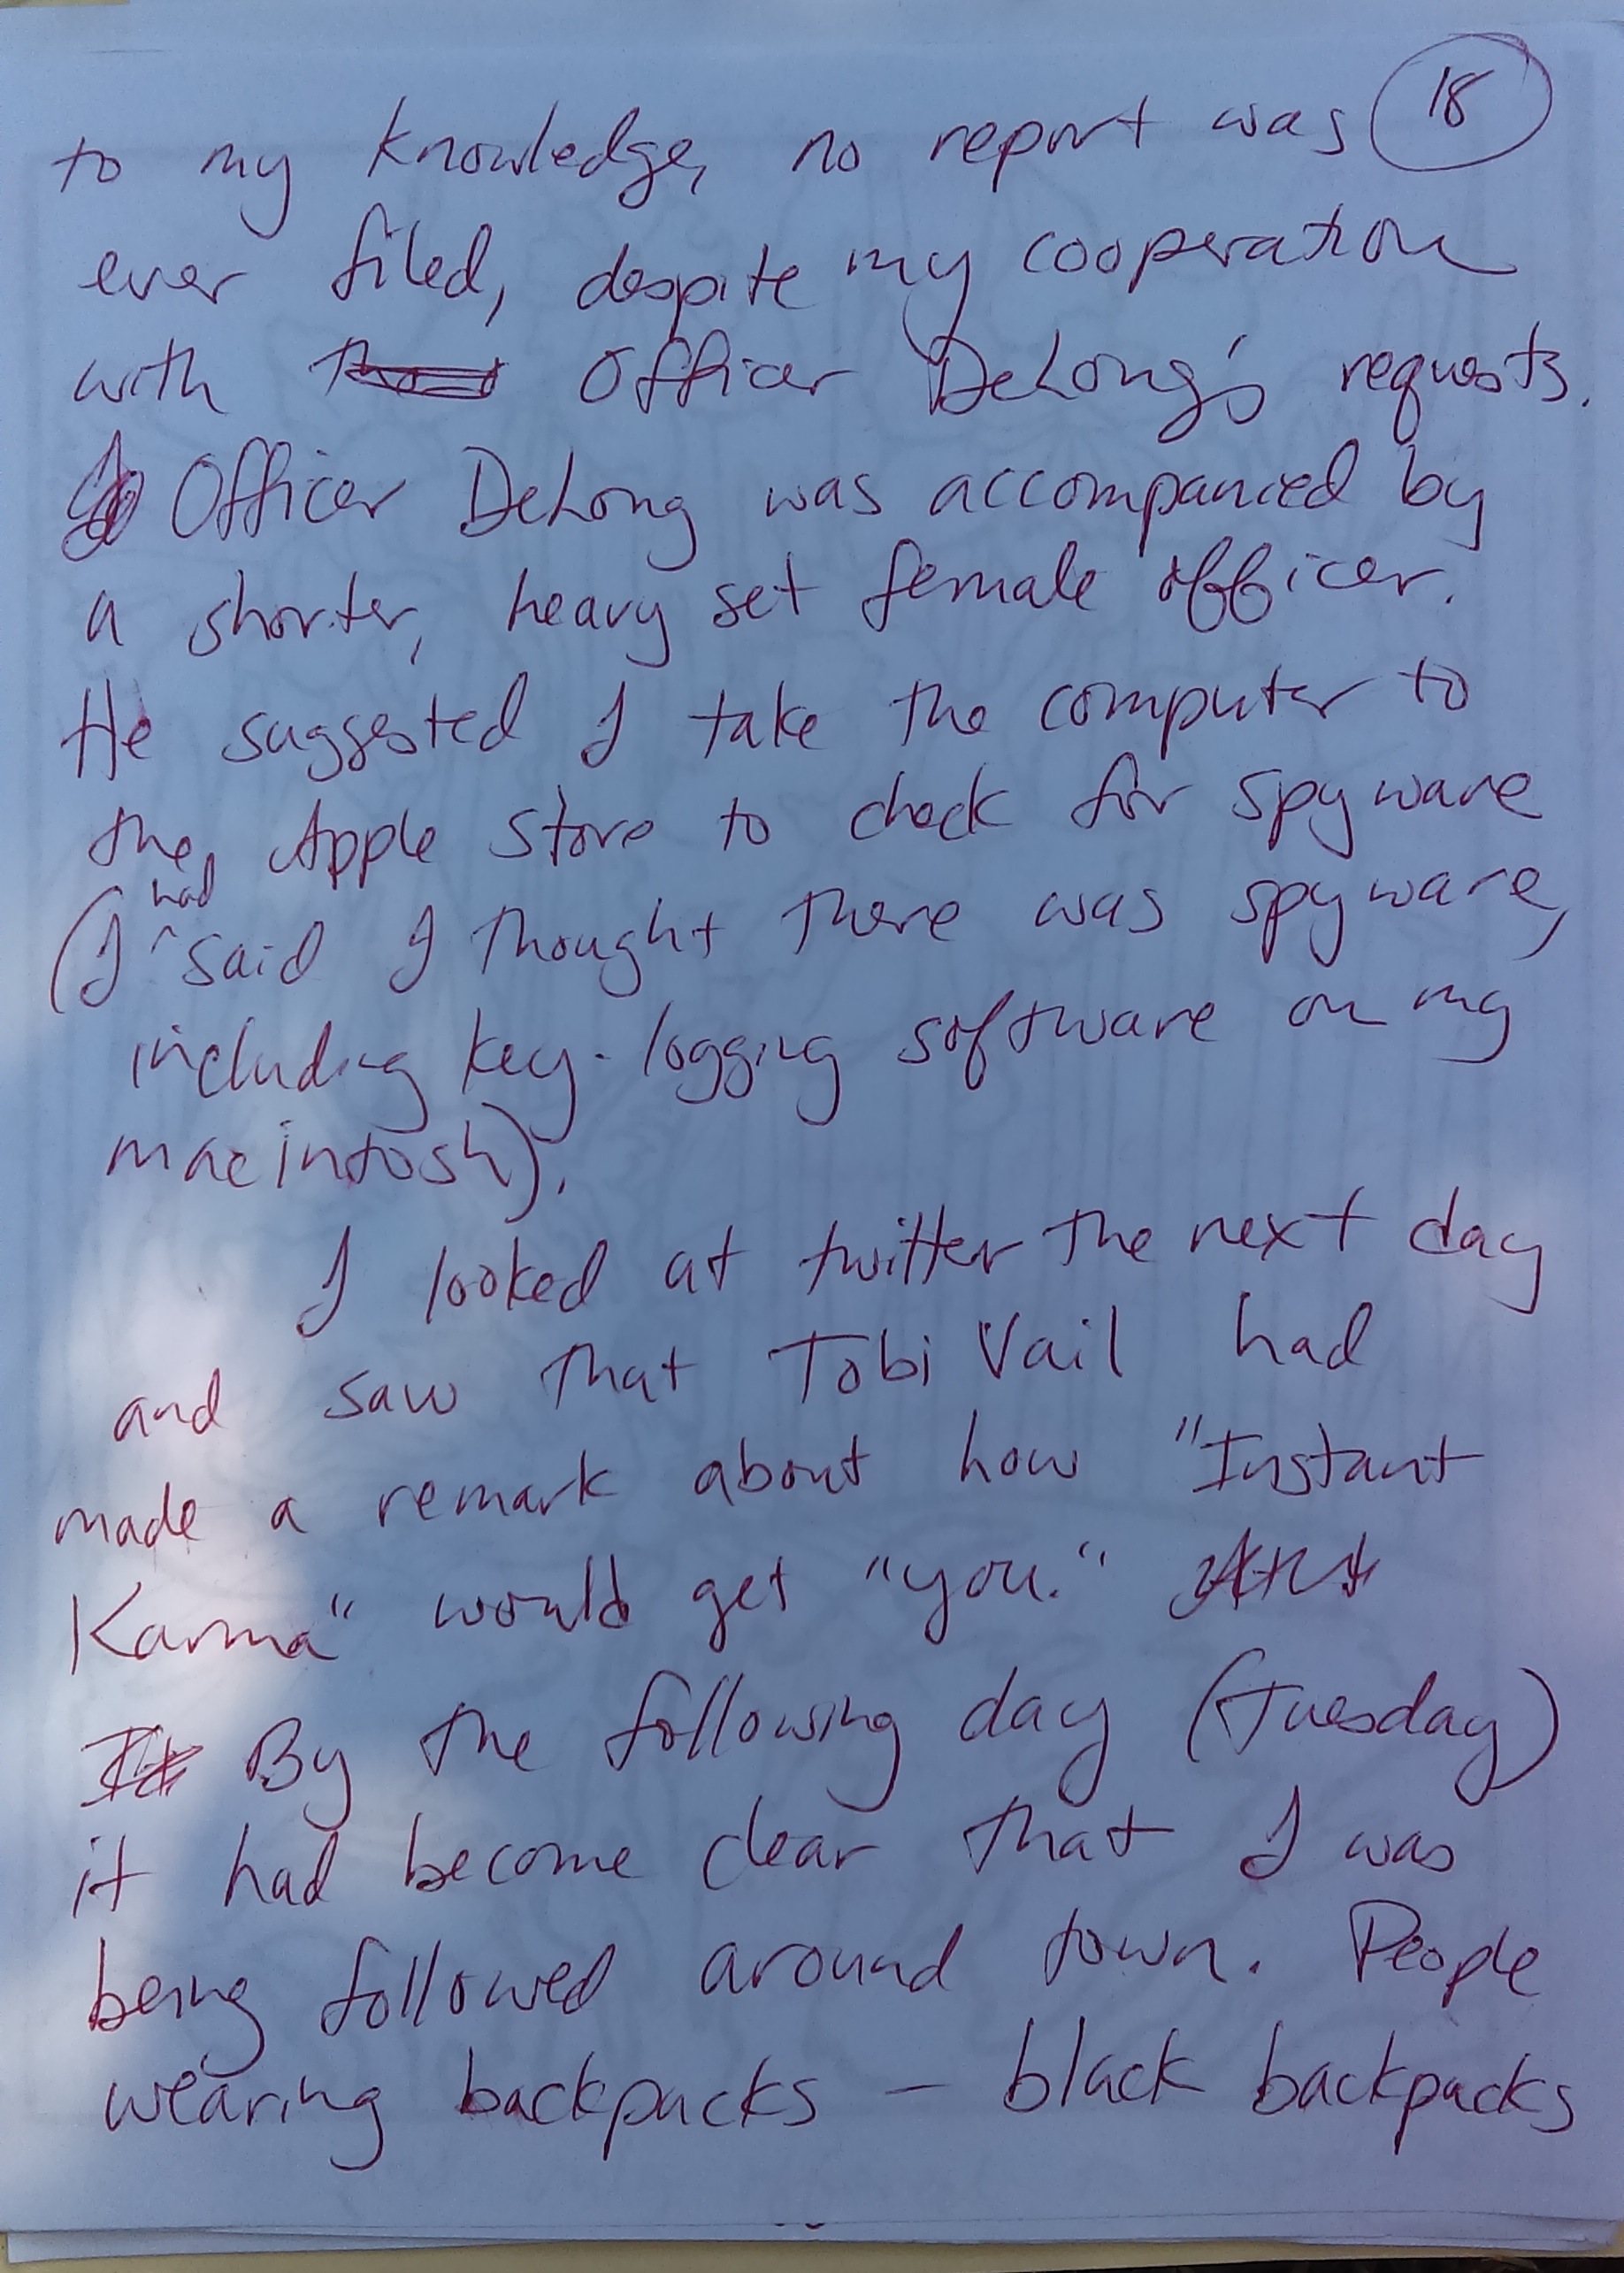 18
to my knowledge, no report was
ever filed, despite my cooperation
with Officer DeLong's requests.
Officer DeLong was accompanied by
a shorter, heavy set female officer.
He suggested I take the computer to
the Apple store to check for spyware
(I had said I thought there was spyware,
including key-logging software on my
macintosh).
I looked at twitter the next day
and saw that Tobi Vail had
made a remark about how "Instant
Karma" would get "you."
By the following day (Tuesday)
it had become clear that I was
being followed around town. People
wearing backpacks – black backpacks